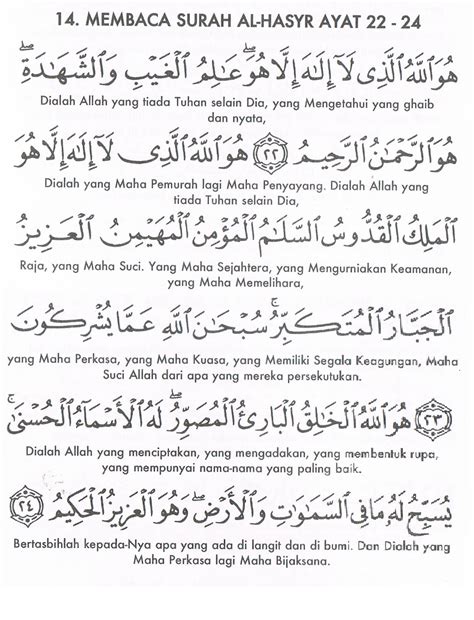 14. MEMBACA SURAH AL-HASYR AYAT 22 - 24
هُوَ ٱللَّهُ ٱلَّذِى لَآ إِلَٰهَ إِلَّا هُوَ ۖ عَٰلِمُ ٱلْغَيْبِ وَٱلشَّهَٰدَةِ ۖ
Dialah Allah yang tiada Tuhan selain Dia, yang Mengetahui yang ghaib
dan nyata,
هُوَ ٱلرَّحْمَٰنُ ٱلرَّحِيمُ ﴿٢٢﴾ هُوَ ٱللَّهُ ٱلَّذِى لَآ إِلَٰهَ إِلَّا هُوَ
Dialah yang Maha Pemurah lagi Maha Penyayang. Dialah Allah yang
tiada Tuhan selain Dia,
ٱلْمَلِكُ ٱلْقُدُّوسُ ٱلسَّلَٰمُ ٱلْمُؤْمِنُ ٱلْمُهَيْمِنُ ٱلْعَزِيزُ
Raja, yang Maha Suci. Yang Maha Sejahtera, yang Mengurniakan Keamanan,
yang Maha Memelihara,
ٱلْجَبَّارُ ٱلْمُتَكَبِّرُ ۚ سُبْحَٰنَ ٱللَّهِ عَمَّا يُشْرِكُونَ
yang Maha Perkasa, yang Maha Kuasa, yang Memiliki Segala Keagungan, Maha
Suci Allah dari apa yang mereka persekutukan.
﴿٢٣﴾ هُوَ ٱللَّهُ ٱلْخَٰلِقُ ٱلْبَارِئُ ٱلْمُصَوِّرُ ۖ لَهُ ٱلْأَسْمَآءُ ٱلْحُسْنَىٰ ۚ
Dialah Allah yang menciptakan, yang mengadakan, yang membentuk rupa,
yang mempunyai nama-nama yang paling baik.
يُسَبِّحُ لَهُۥ مَا فِى ٱلسَّمَٰوَٰتِ وَٱلْأَرْضِ ۖ وَهُوَ ٱلْعَزِيزُ ٱلْحَكِيمُ ﴿٢٤﴾
Bertasbihlah kepada-Nya apa yang ada di langit dan di bumi. Dan Dialah yang
Maha Perkasa lagi Maha Bijaksana.